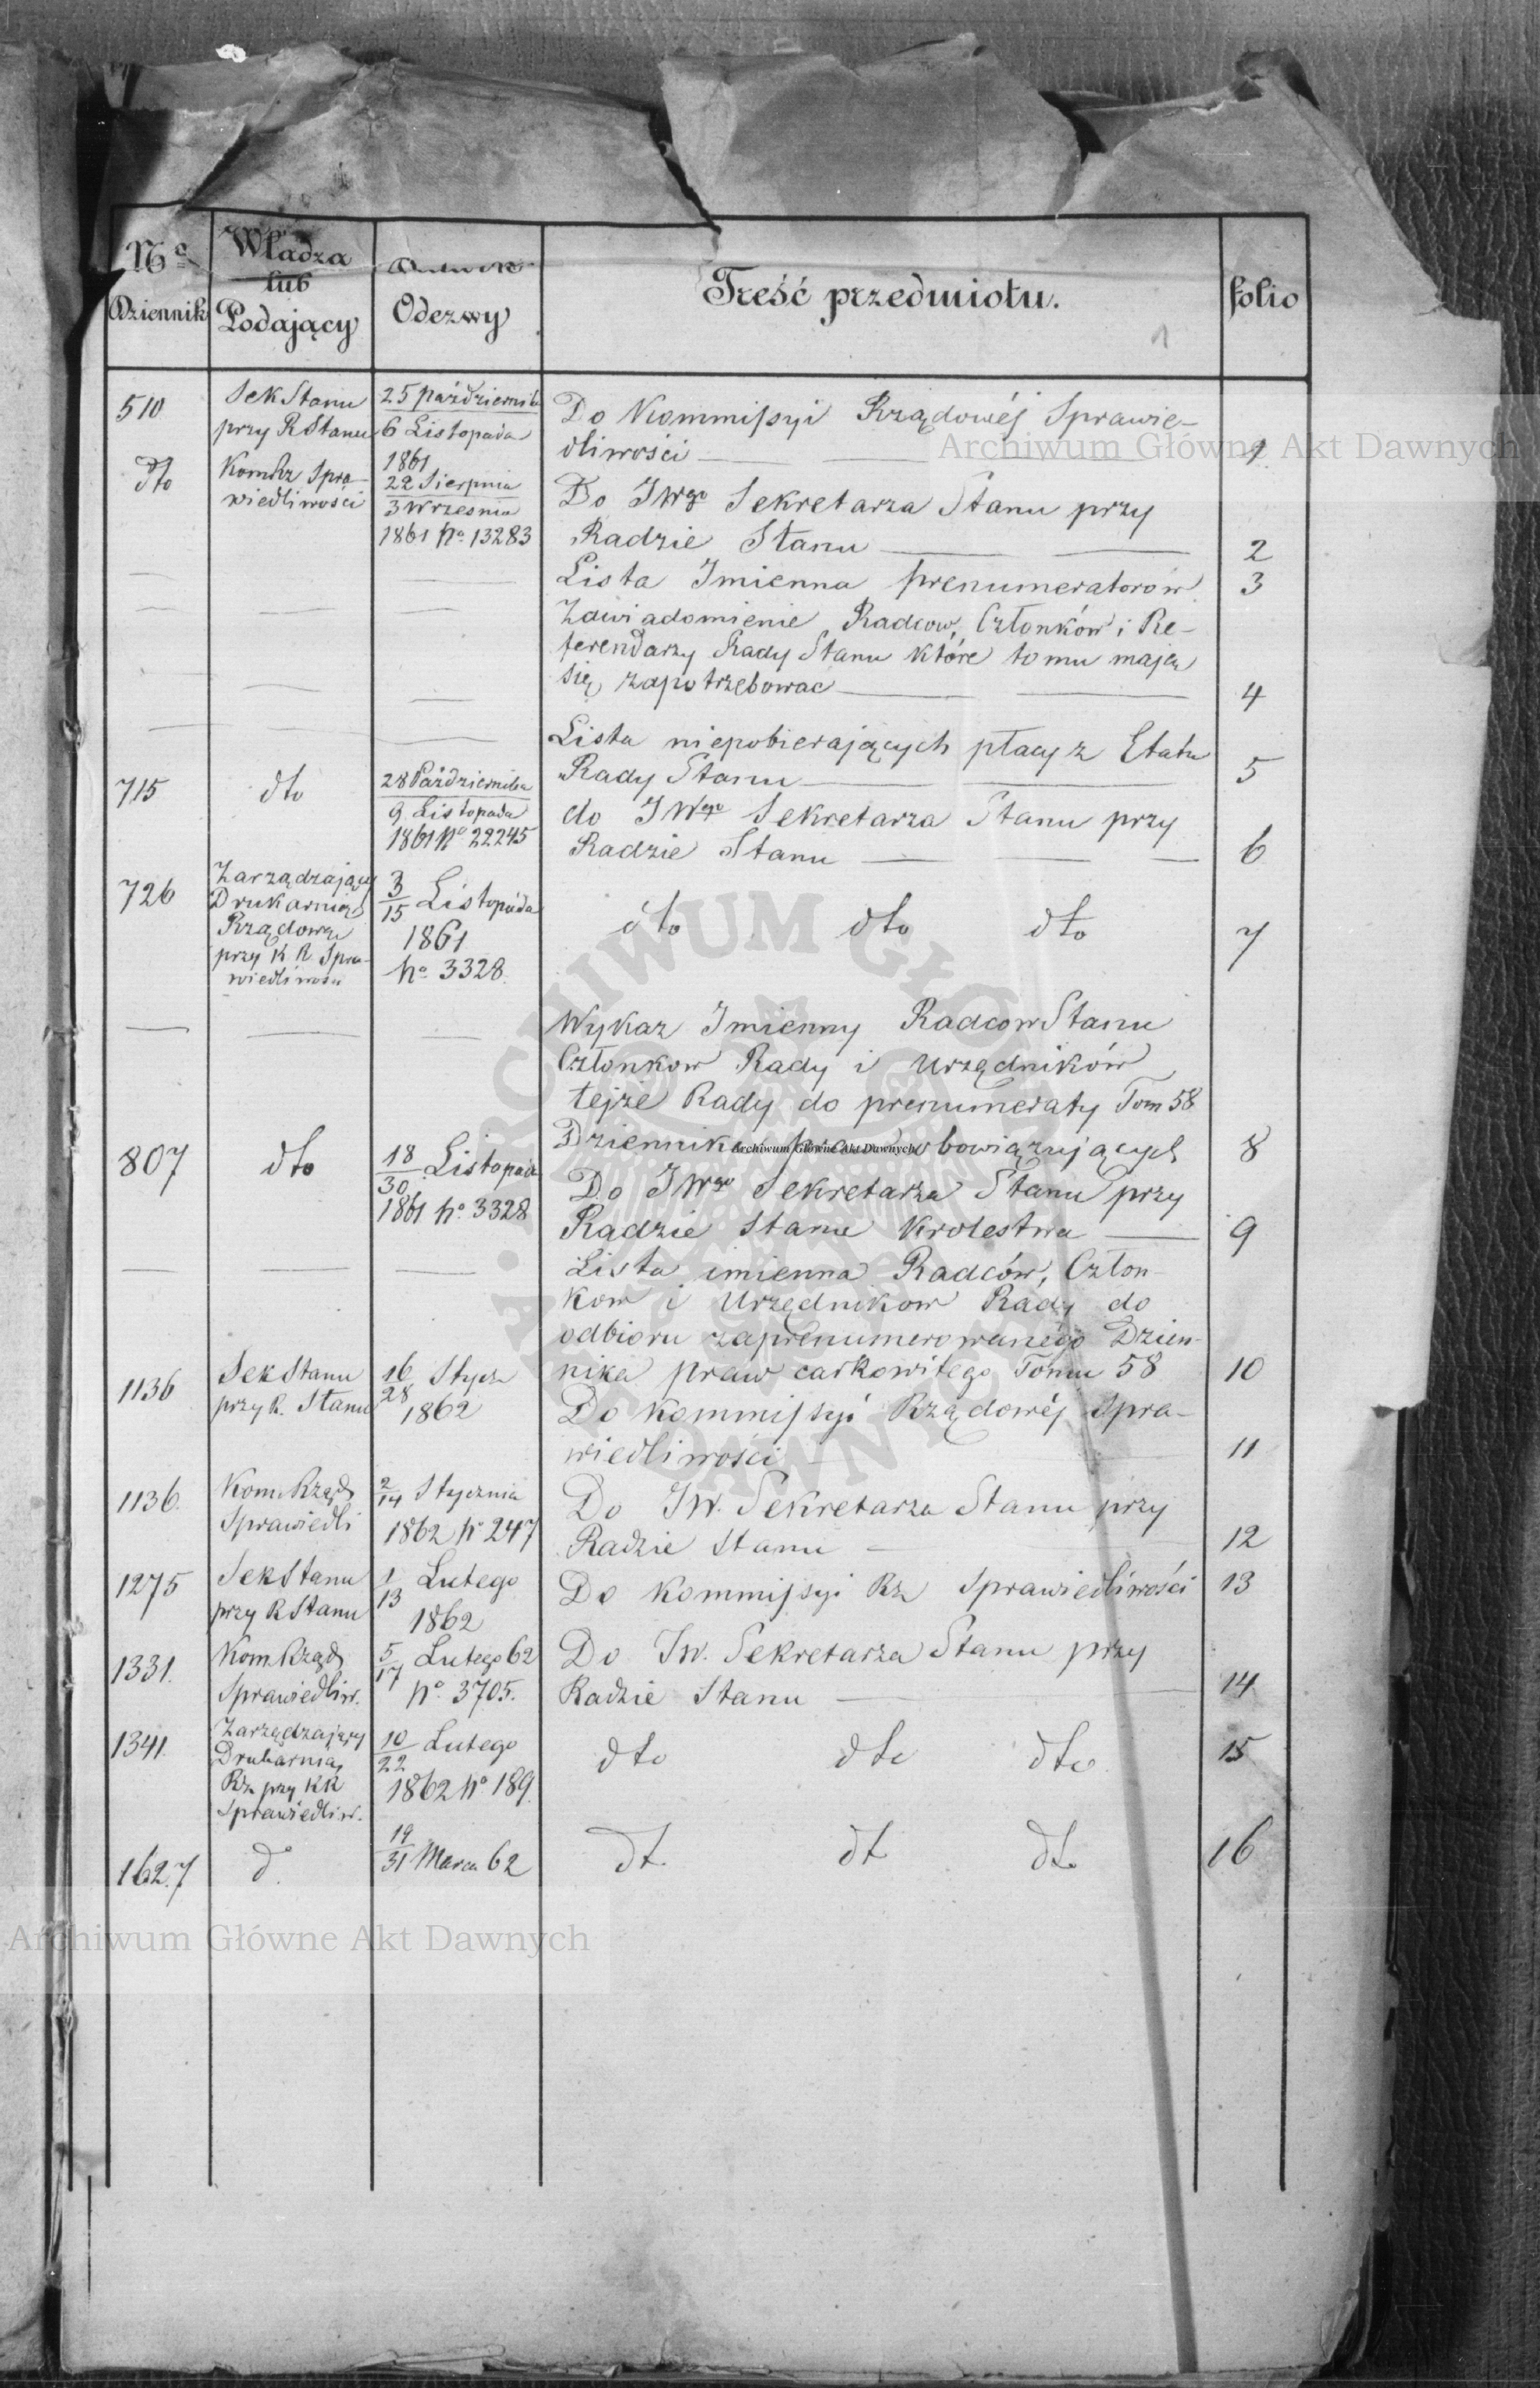 No
Dziennik
Władza
lub
Podający
Odezwy
Treść przedmiotu.
folio
1
510
Sek Stanu
przy R Stanu
25 październik
6 Listopada
1861
Do Kommissyi Rządowéj Sprawie-
dliwości
1
dto
Kom Rz Spra-
wiedliwości
22 Sierpnia
3 Wrzesnia
1861 No 13283
Do JWgo Sekretarza Stanu przy
Radzie Stanu
2
Lista Imienna prenumeratorów
3
Zawiadomienie Radcow, Członków i Re-
ferendarzy Rady Stanu które tomu mają
się zapotrzebowac
4
Lista niepobierających płacy z Etatu
Rady Stanu
5
715
dto
28 Października
9 Listopada
1861 No 22245
do JWgo Sekretarza Stanu przy
Radzie Stanu
6
726
Zarządzający
Drukarnią
Rządową
przy K R Spra-
wiedliwosci
3
15 Listopada
1861
No 3328.
dto dto dto
7
Wykaz Imienny Radcow Stanu
Członkow Rady i Urzędników
tejże Rady do prenumeraty Tom 58
Dziennika obowiązujących
8
807
dto
18
30 Listopada
1861 No 3328
Do JWgo Sekretarza Stanu przy
Radzie Stanu Krolestwa
9
Lista imienna Radców, Człon-
kow i Urzędnikow Rady do
odbioru zaprenumerowanégo Dzien-
nika praw całkowitego Tomu 58
10
1136
Sek Stanu
przy R. Stanu
16
28 Stycz
1862
Do Kommissyi Rządowéj Spra-
wiedliwości
11
1136.
Kom. Rząd
Sprawiedli
2
14 Stycznia
1862 No 247
Do JW. Sekretarza Stanu przy
Radzie Stanu
12
1275
Sek Stanu
przy R Stanu
1
13 Lutego
1862
Do Kommissyi Rz Sprawiedliwości
13
1331.
Kom Rząd
Sprawiedliw.
5
17 Lutego 62
No. 3705.
Do JW. Sekretarza Stanu przy
Radzie Stanu
14
1341.
Zarządzający
Drukarnią
Rz przy KR
Sprawiedliw.
10
22 Lutego
1862 No 189.
dto dto dto
15
1627
do
19
31 Marca 62
dt dt dto
16
Archiwum Główne Akt Dawnych
Archiwum Główne Akt Dawnych
Archiwum Główne Akt Dawnych